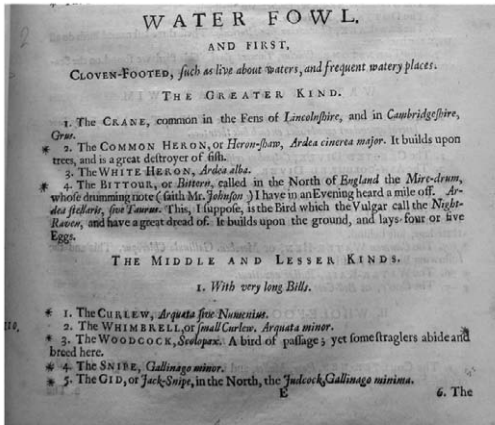 2
WATER FOWL.
AND FIRST,
CLOVEN-FOOTED, ſuch as live about waters, and frequent watery places.
THE GREATER KIND.
1. The CRANE, common in the Fens of Lincolnſhire, and in Cambridgeſhire,
Grus.
* 2. The COMMON HERON, or Heron-ſhaw, Ardea cinerea major. It builds upon
trees, and is a great deſtroyer of fiſh.
3. The WHITE HERON, Ardea alba.
* 4. The BITTOUR, or Bittern, called in the North of England the Mire-drum,
whoſe drumming note (ſaith Mr. Johnſon) I have in an Evening heard a mile off. Ar-
dea ſtellaris, ſive Taurus. This, I ſuppoſe, is the Bird which the Vulgar call the Night-
Raven, and have a great dread of. It builds upon the ground, and lays four or five
Eggs.
THE MIDDLE AND LESSER KINDS.
1. With very long Bills.
* 1. The CURLEW, Arquata ſive Numenius.
2. The WHIMBRELL, or ſmall Curlew, Arquata minor.
* 3. The WOODCOCK, Scolopax. A bird of paſſage; yet ſome ſtraglers abide and
breed here.
* 4. The SNIPE, Gallinago minor.
* 5. The GID, or Jack-Snipe, in the North, the Judcock, Gallinago minima.
E 6. The